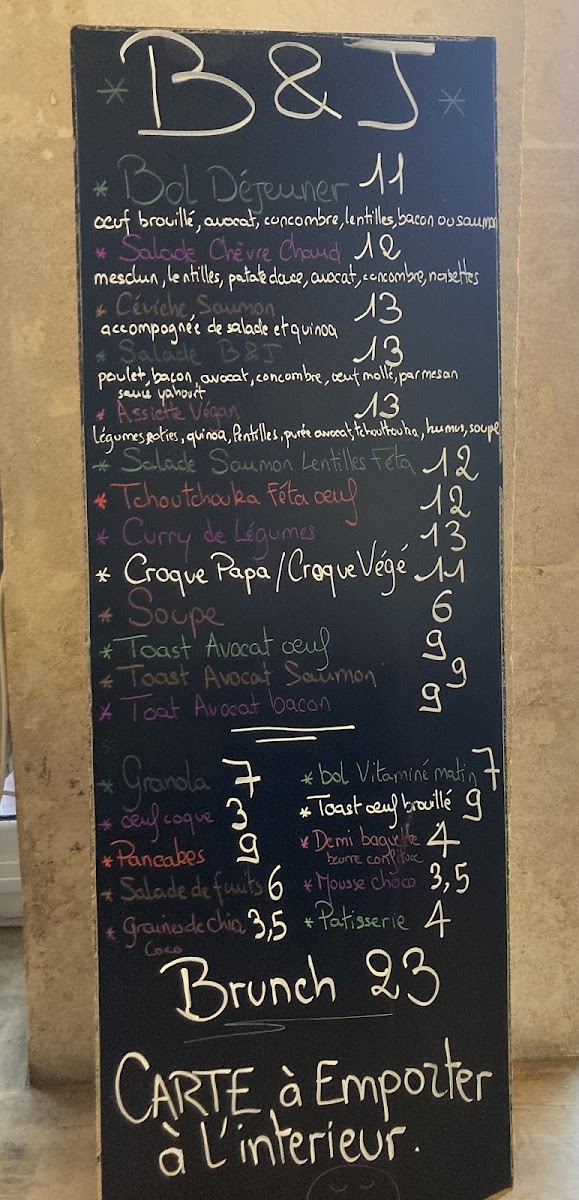 * B & J *
* Bol Déjeuner 11
œuf brouillé, avocat, concombre, lentilles, bacon ou saumon
* Salade Chèvre Chaud 12
mesclun, lentilles, patate douce, avocat, concombre, noisettes
* Céviche Saumon 13
accompagnée de salade et quinoa
* Salade B&J 13
poulet, bacon, avocat, concombre, œuf mollé, parmesan
sauce yahourt
* Assiette Végan 13
légumes roties, quinoa, lentilles, purée avocat, tchouttouka, humus, soupe
* Salade Saumon Lentilles Féta 12
* Tchoutchouka Féta œuf 12
* Curry de Légumes 13
* Croque Papa / Croque Végé 11
* Soupe 6
* Toast Avocat œuf 9
* Toast Avocat Saumon 9
* Toat Avocat bacon 9
* Granola 7
* œuf coque 3
* Pancakes 9
* Salade de fuits 6
* Graines de chia 3,5
Coco
* bol Vitaminé matin 7
* Toast œuf brouillé 9
* Demi baguette 4
beurre confiture
* Mousse choco 3,5
* Patisserie 4
Brunch 23
CARTE à Emporter
à L'interieur.